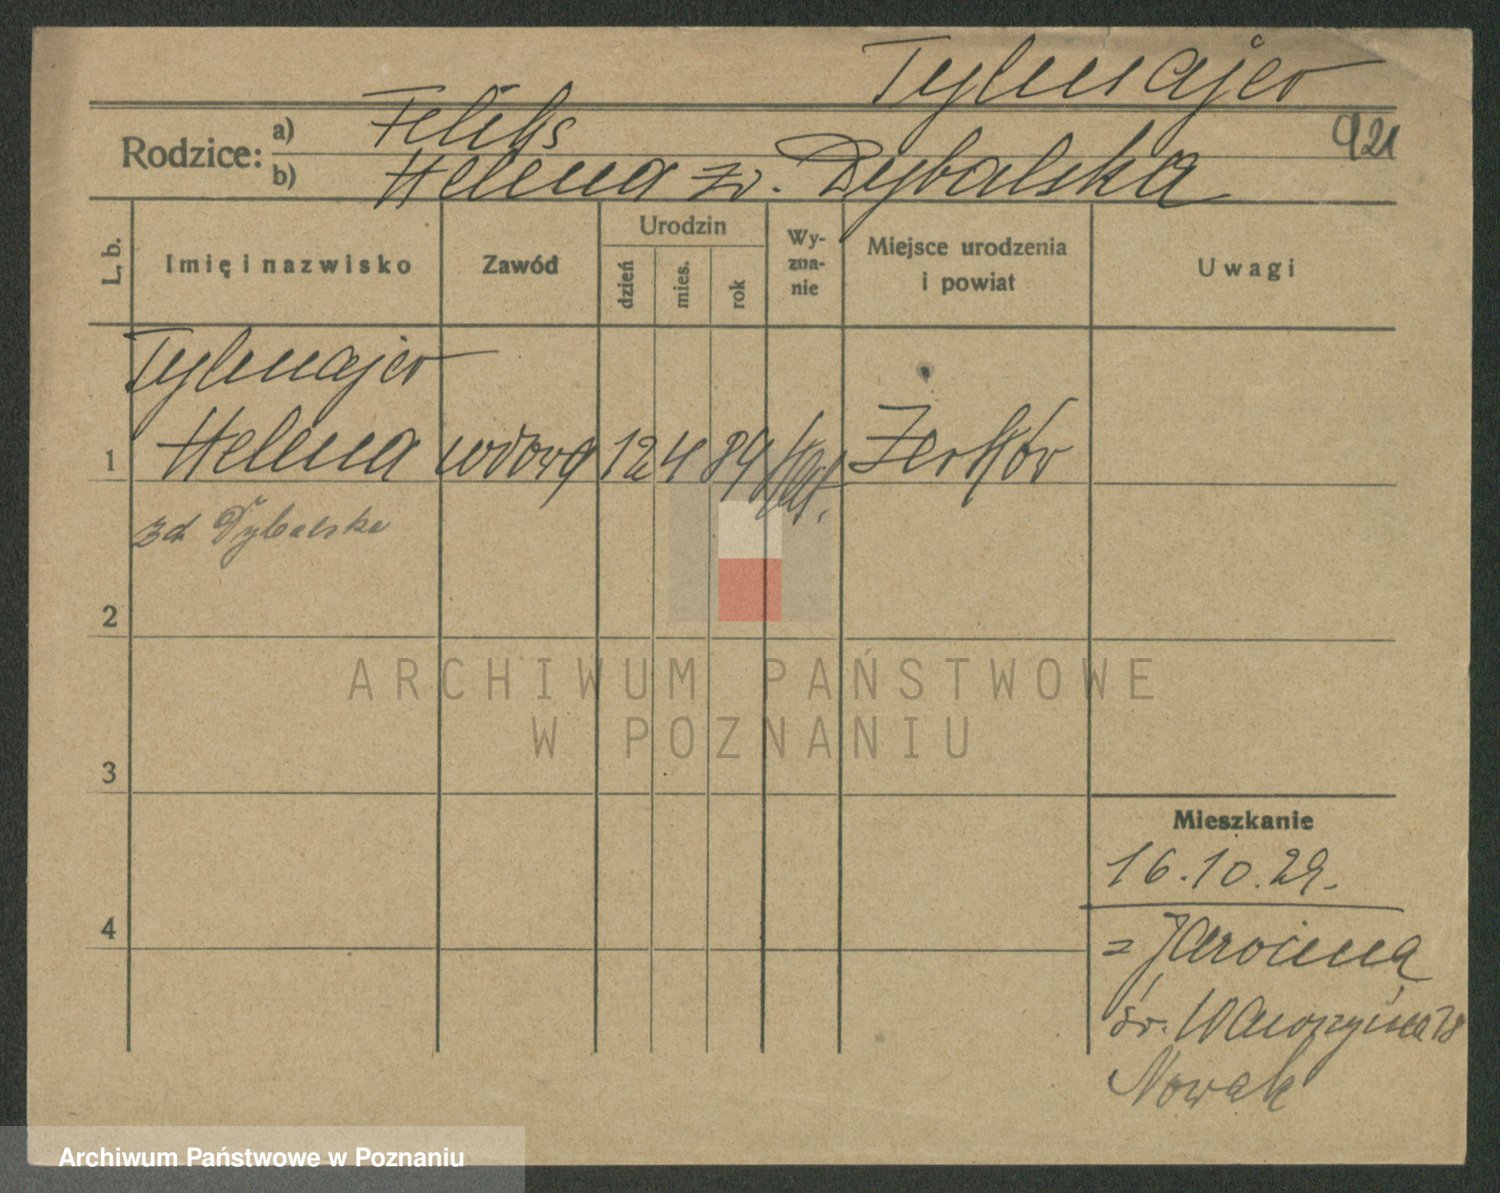 Tylmajer
921
Rodzice: a) Feliks
b) Helena zd. Dybalska
L. b. Imię i nazwisko Zawód Urodzin dzień mies. rok Wyznanie Miejsce urodzenia i powiat Uwagi
Tylmajer
1 Helena wdowa 12 4 89 kat. Żerków
zd Dybalska
2
3
4
Mieszkanie
16.10.29.
z Jarocina
św. Wawrzyńca 28
Nowak
ARCHIWUM PAŃSTWOWE
W POZNANIU
Archiwum Państwowe w Poznaniu